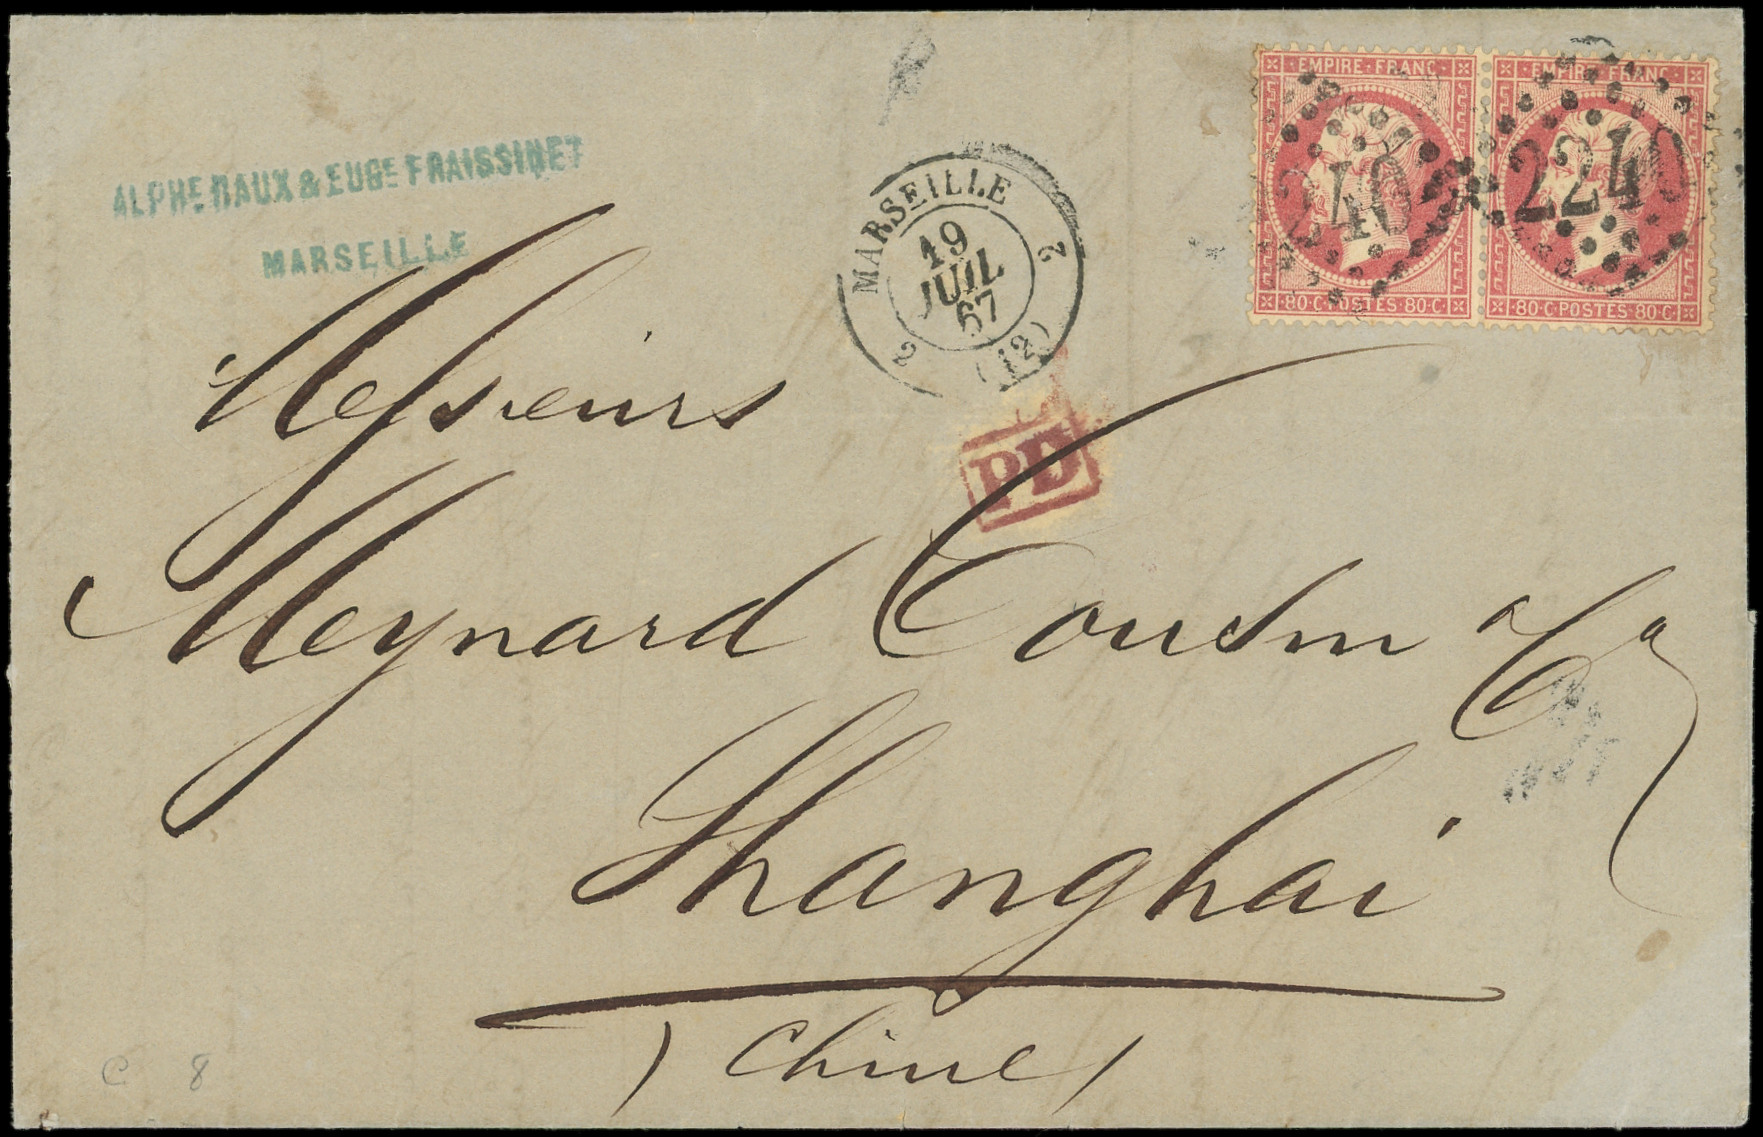 ALPHE RAUX & EUGE FRAISSINET
MARSEILLE
MARSEILLE
19
JUIL
67
2
2
(12)
EMPIRE FRANC
EMPIRE FRANC
2240
2240
80·C·POSTES·80·C
80·C·POSTES·80·C
PD
Messieurs
Meynard Cousin & Co
Shanghai
(Chine)
C 8